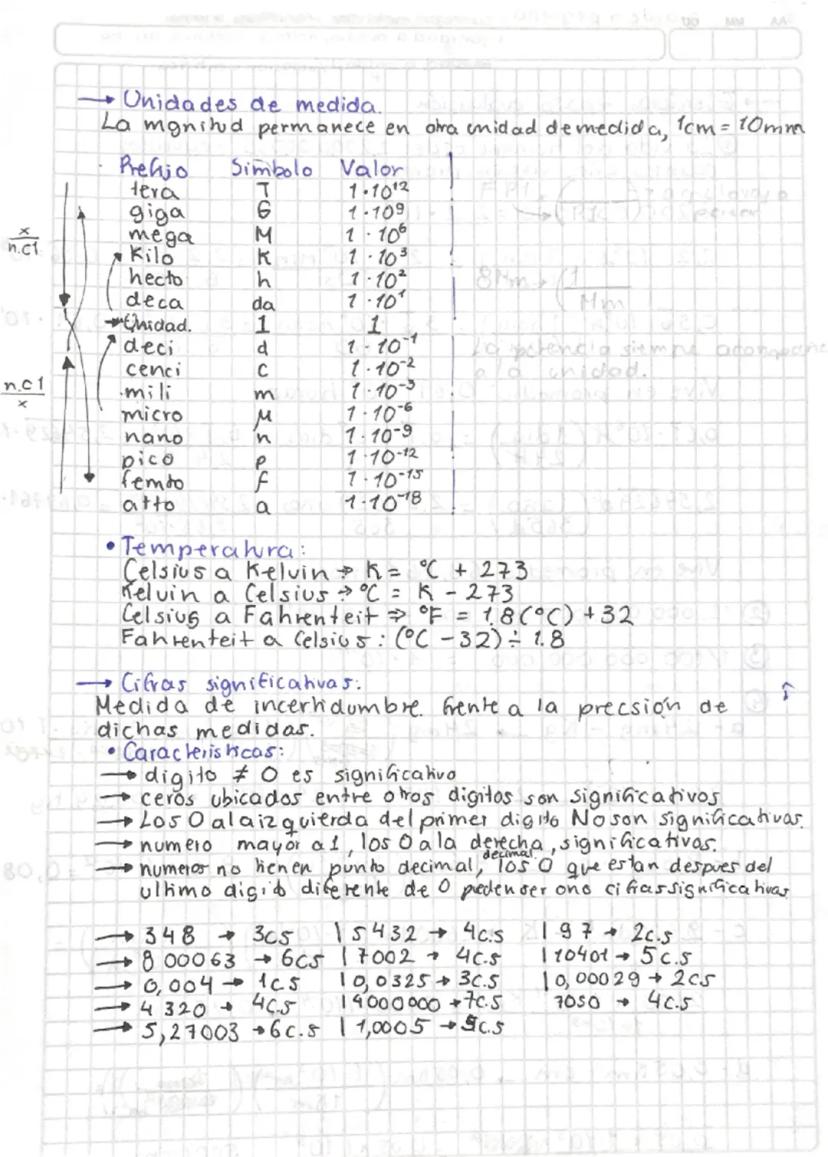 AA MM DD
→ Unidades de medida.
La mgnitud permanece en otra unidad de medida, 1cm = 10mm
Prefijo Simbolo Valor
tera T 1·10¹²
giga G 1·10⁹
mega M 1·10⁶
Kilo K 1·10³
hecto h 1·10²
deca da 1·10¹
→Unidad. 1 1
deci d 1·10⁻¹
cenci c 1·10⁻²
mili m 1·10⁻³
micro μ 1·10⁻⁶
nano n 1·10⁻⁹
pico p 1·10⁻¹²
femto f 1·10⁻¹⁵
atto a 1·10⁻¹⁸
x
n.c1
n.c1
x
• Temperatura:
Celsius a Kelvin → K = °C + 273
Kelvin a Celsius → °C = K - 273
Celsius a Fahrenteit ⇒ °F = 1.8(°C) + 32
Fahrenteit a Celsius : (°C - 32) ÷ 1.8
→ Cifras significativas:
Medida de incertidumbre frente a la precsión de
dichas medidas.
• Caracteristicas:
→ digito ≠ 0 es significativo
→ ceros ubicados entre otros digitos son significativos
→ Los 0 a la izquierda del primer digito No son significativas.
→ numero mayor a 1, los 0 a la derecha, significativas.
→ numeros no tienen punto decimal, decimal. los 0 que estan despues del
ultimo digito diferente de 0 peden ser ono cifras significativas
→ 348 → 3cs | 5432 → 4c.s | 97 → 2c.s
→ 800063 → 6cs | 7002 → 4c.s | 10401 → 5c.s
→ 0,004 → 1cs | 0,0325 → 3c.s | 0,00029 → 2cs
→ 4320 → 4c.s | 4000000 → 7c.s 7050 → 4c.s
→ 5,27003 → 6c.s | 1,0005 → 5c.s
La potencia siempre acompañ
a la unidad.